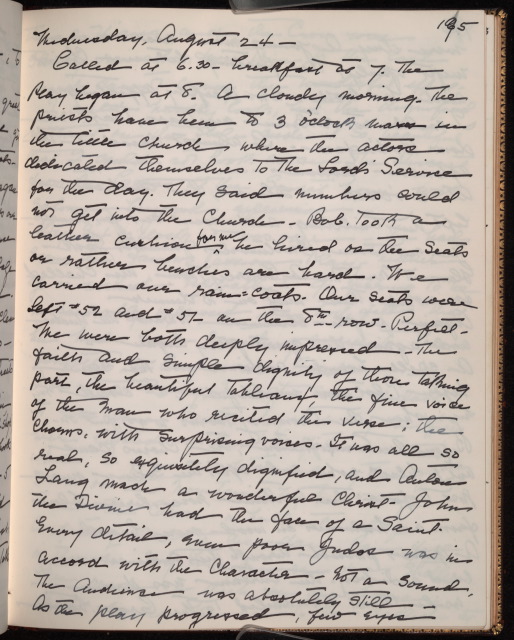 195
Wednesday, August 24 -
Called at 6.30 - breakfast at 7. The
play began at 8. A cloudy morning. The
priests have been to 3 o'clock mass in
the little church where the actors
dedicated themselves to the Lord's Service
for the day. They said numbers could
not get into the Church - Bob took a
leather cushion for me he hired as the seats
or rather benches are hard. We
carried our rain=coats. Our seats were
left #52 and #51 on the 8th row - Perfect -
We were both deeply impressed - The
faith and simple dignity of those taking
part, the beautiful tableaux, the fine voice
of the man who recited the verse; the
Chorus, with surprising voices. It was all so
real, so exquisitely dignified, and Anton
Lang made a wonderful Christ - John
the Divine had the face of a Saint.
Every detail, even poor Judas was in
accord with the Character - Not a sound,
The Audience was absolutely still -
As the play progressed, few eyes